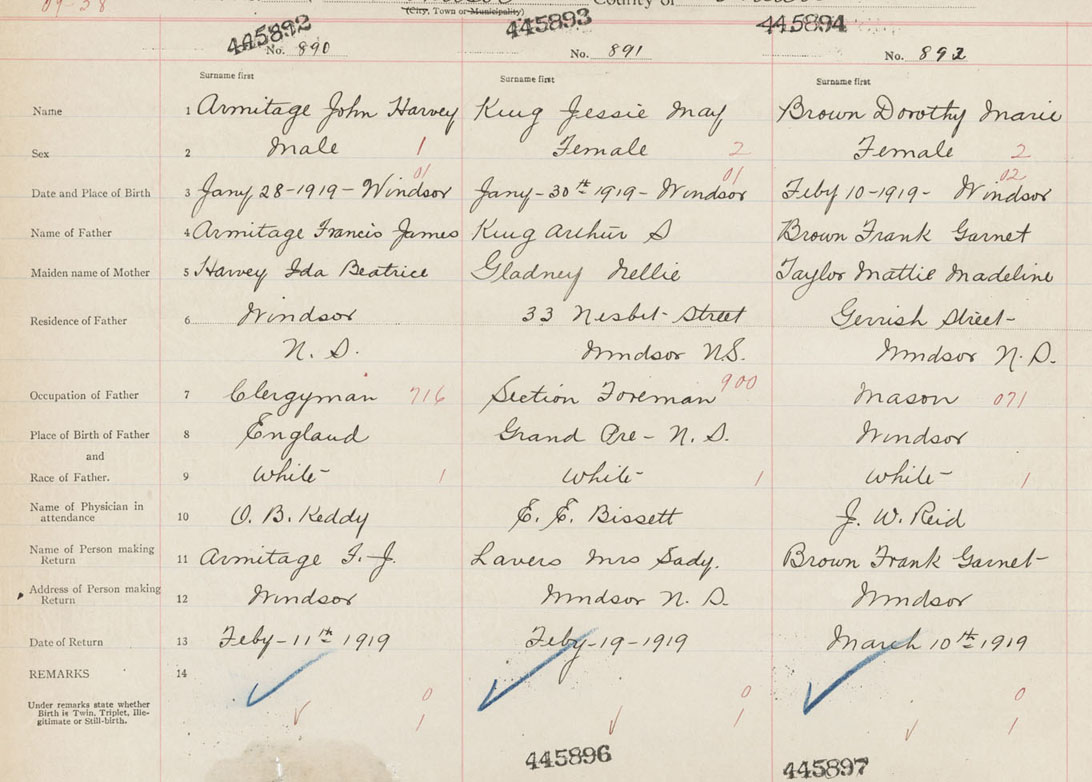 09-38
County of
(City, Town or Municipality)
445892 445893 445894
No. 890 No. 891 No. 892
Surname first Surname first Surname first
Name 1 Armitage John Harvey King Jessie May Brown Dorothy Marie
Sex 2 Male 1 Female 2 Female 2
01 01 02
Date and Place of Birth 3 Jany 28-1919- Windsor Jany-30th 1919- Windsor Feby 10-1919- Windsor
Name of Father 4 Armitage Francis James King Arthur S Brown Frank Garnet
Maiden name of Mother 5 Harvey Ida Beatrice Gladney Nellie Taylor Mattie Madeline
Residence of Father 6 Windsor 33 Nesbit Street Gerrish Street-
N. S. Windsor NS. Windsor N. S.
Occupation of Father 7 Clergyman 716 Section Foreman 900 Mason 071
Place of Birth of Father 8 England Grand Pre- N. S. Windsor
and
Race of Father. 9 White- 1 White- 1 White- 1
Name of Physician in
attendance 10 O. B. Keddy E. E. Bissett J. W. Reid
Name of Person making
Return 11 Armitage F. J. Lavers Mrs Sady. Brown Frank Garnet-
Address of Person making
Return 12 Windsor Windsor N. S. Windsor
Date of Return 13 Feby-11th 1919 Feby-19-1919 March 10th 1919
REMARKS 14
Under remarks state whether
Birth is Twin, Triplet, Ille-
gitimate or Still-birth.
0 0 0
1 1 1
445896 445897